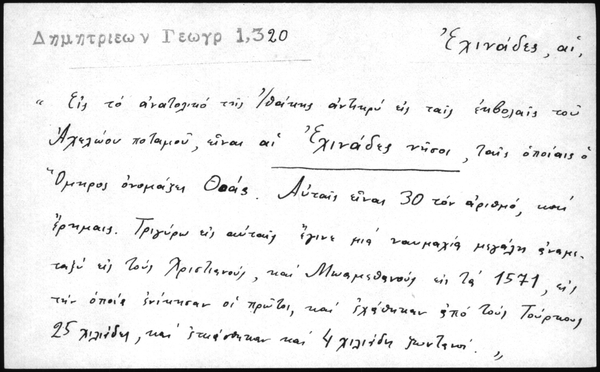 Δημητριεων Γεωγρ 1,320
Ἐχινάδες, αἱ,
„ Εἰς τὸ ἀνατολικὸ τῆς Ἰθάκης ἀντικρὺ εἰς ταῖς ἐκβολαῖς τοῦ
Ἀχελώου ποταμοῦ, εἶναι αἱ Ἐχινάδες νῆσοι, ταῖς ὁποίαις ὁ
Ὅμηρος ὀνομάζει Θοάς. Αὐταῖς εἶναι 30 τὸν ἀριθμό, καὶ
ἔρημαις. Τριγύρω εἰς αὐταῖς ἔγινε μιὰ ναυμαχία μεγάλη ἀναμε-
ταξὺ εἰς τοὺς Χριστιανούς, καὶ Μωαμεθανοὺς εἰς τὰ 1571, εἰς
τὴν ὁποία ἐνίκησαν οἱ πρῶτοι, καὶ ἐχάθηκαν ἀπὸ τοὺς Τούρκους
25 χιλιάδες, καὶ ἐπιάσθηκαν καὶ 4 χιλιάδες ζωντανοί. „